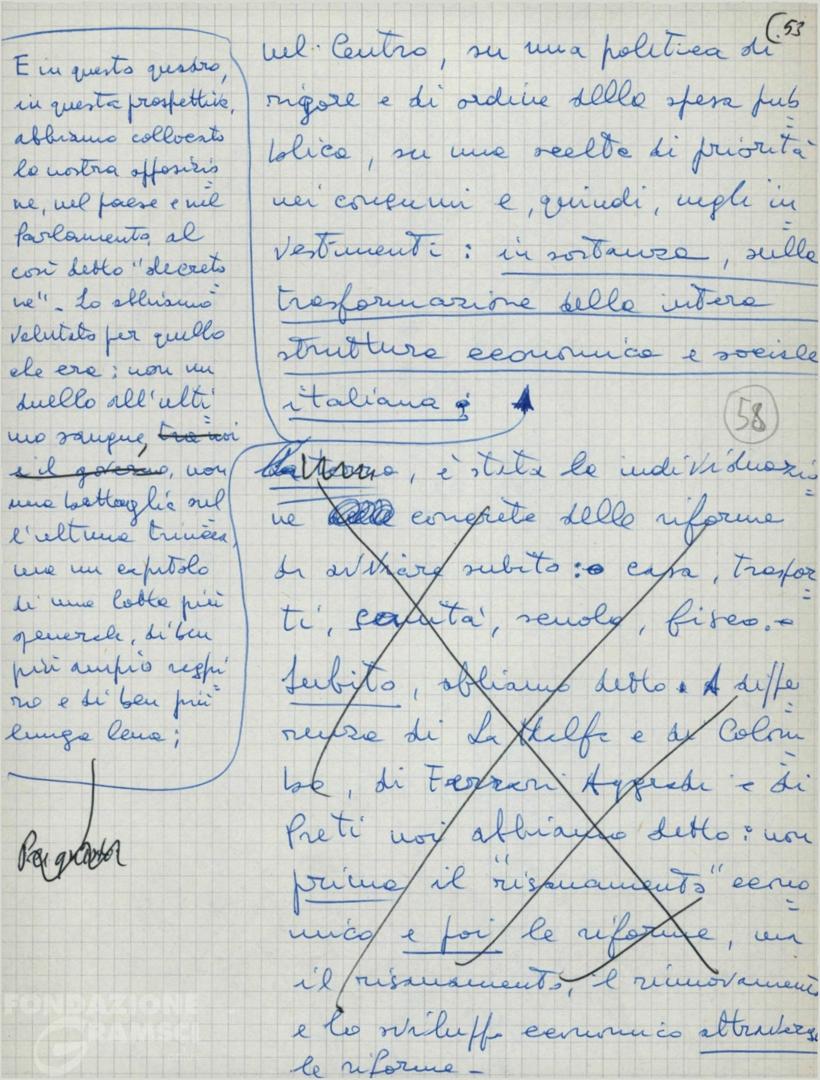 53
nel Centro, su una politica di
rigore e di ordine della spesa pub
blica, su una scelta di priorità
nei consumi e, quindi, negli in
vestimenti: in sostanza, sulla
trasformazione della intera
struttura economica e sociale
italiana;
58
E in questo quadro,
in questa prospettiva,
abbiamo collocato
la nostra opposizio
ne, nel paese e nel
Parlamento, al
così detto "decreto
ne". Lo abbiamo
valutato per quello
che era: non un
duello all'ulti
mo sangue, tra noi
e il governo, non
una battaglia sul
l'ultima trincea,
ma un capitolo
di una lotta più
generale, di ben
più ampio respi
ro e di ben più
lunga lena;
, è stata la individuazio
ne concreta delle riforme
da avviare subito: casa, traspor
ti, sanità, scuola, fisco.
Subito, abbiamo detto. A diffe
renza di La Malfa e di Colom
bo, di Ferrari Aggradi e di
Preti noi abbiamo detto: non
prima il "risanamento" econo
mico e poi le riforme, ma
il risanamento, il rinnovamento
e lo sviluppo economico attraverso
le riforme -
FONDAZIONE
GRAMSCI